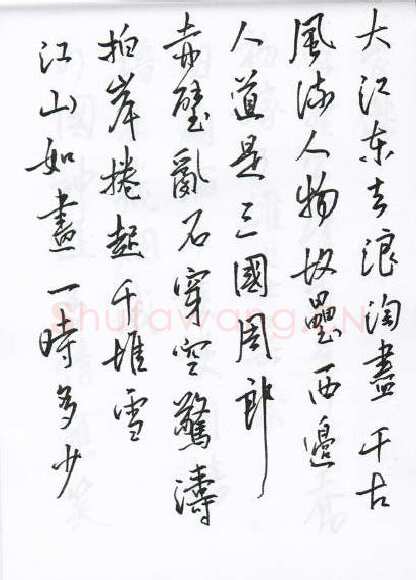 大江东去浪淘盡千古
風流人物故壘西邊
人道是三國周郎
赤壁亂石穿空驚濤
拍岸捲起千堆雪
江山如畫一時多少
Shufawang.CN